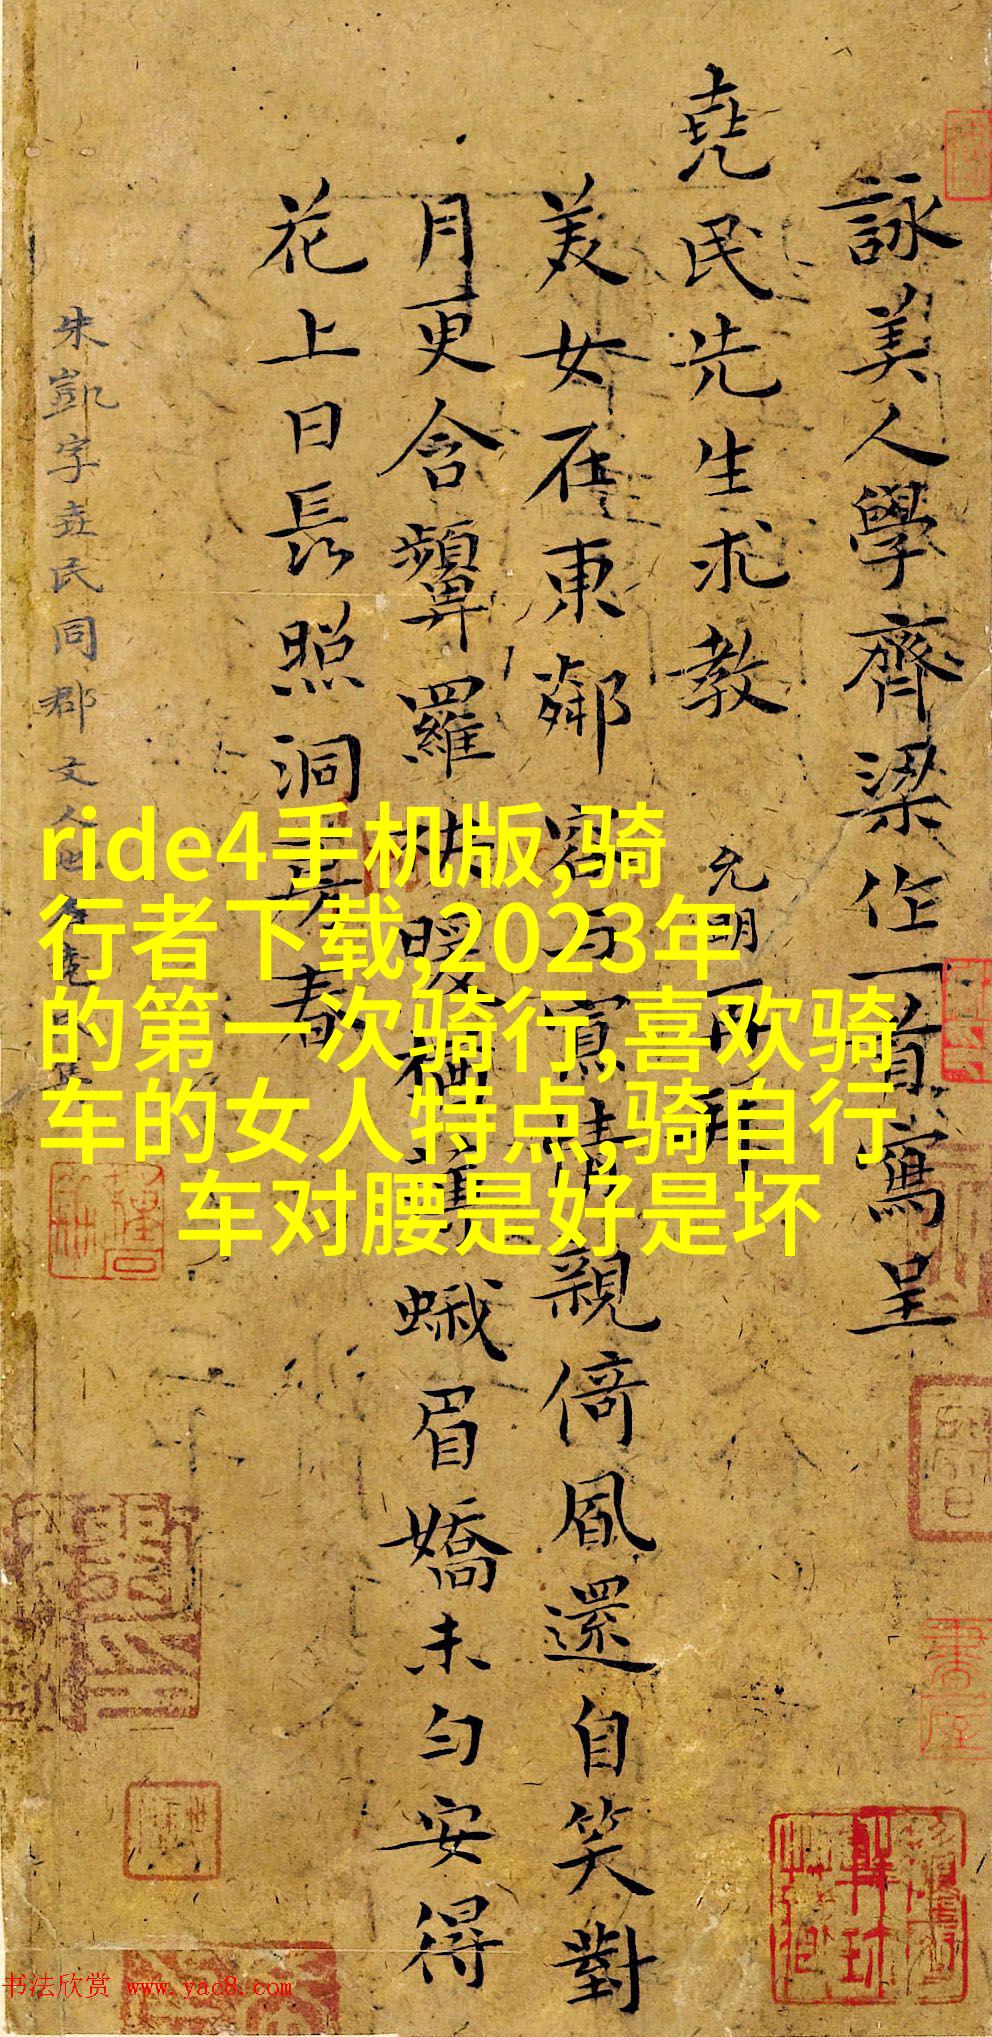 詠美人學齊梁作一首寫呈
堯民先生求教 允明再拜
美女在東鄰容與寫情親倚風還自笑對
月更含顰羅袂暖 蛾眉嬌未勻安得
花上日長照洞房春
朱凱字堯民同郡文人也
ride4手机版,骑
行者下载,2023年
的第一次骑行,喜欢骑
车的女人特点,骑自行
车对腰是好是坏
书法欣赏 www.yac8.com